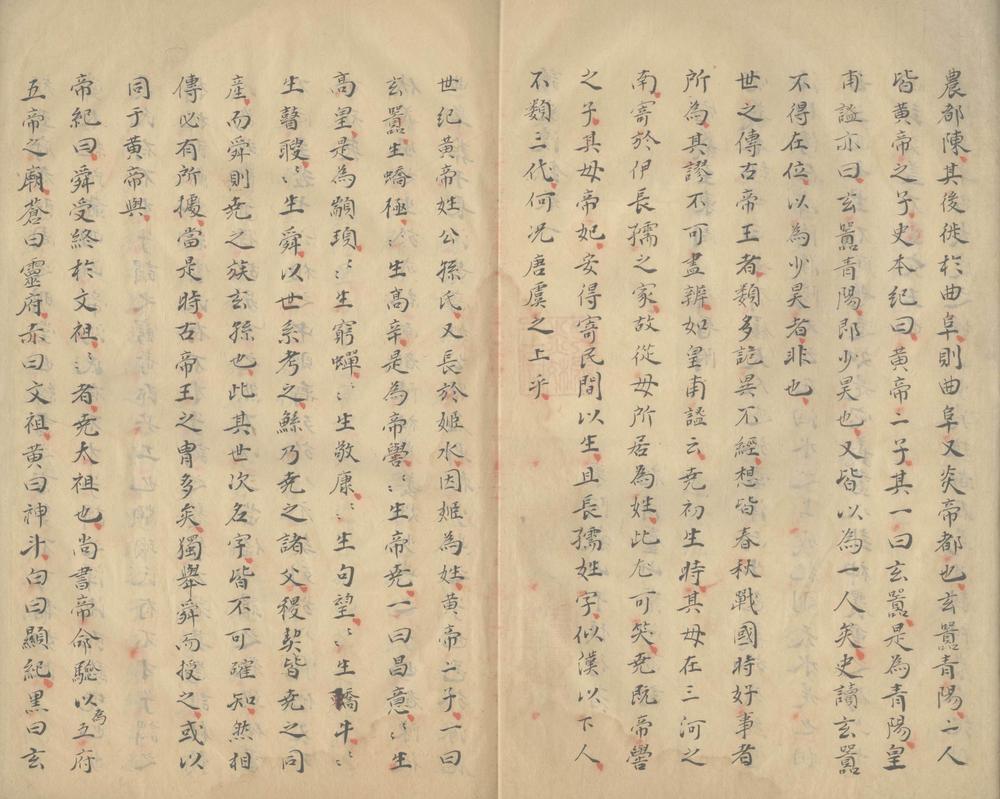 農都陳其後徙於曲阜則曲阜又炎帝都也玄囂青陽二人
皆黄帝之子史本紀曰黄帝二子其一曰玄囂是為青陽皇
甫謐亦曰玄囂青陽即少昊也又皆以為一人矣史讀玄囂
不得在位以為少昊者非也
世之傳古帝王者類多詑異不經想皆春秋戰國時好事者
所為其謬不可盡辨如皇甫謐云堯初生時其母在三河之
南寄於伊長孺之家故從母所居為姓此尤可笑堯既帝嚳
之子其母帝妃安得寄民間以生且長孺姓字似漢以下人
不類三代何况唐虞之上乎
世紀黄帝姓公孫氏又長於姬水因姬為姓黄帝二子一曰
玄囂生蟜極〻生高辛是為帝嚳〻生帝堯一曰昌意〻生
高皇是為顓頊〻生窮蟬〻生敬康〻生句望〻生蟜牛〻
生瞽瞍〻生舜以世系考之鯀乃堯之諸父稷契皆堯之同
產而舜則堯之族玄孫也此其世次名字皆不可確知然相
傳必有所據當是時古帝王之胄多矣獨舉舜而授之或以
同于黄帝與
帝紀曰舜受終於文祖〻者堯大祖也尚書帝命驗以為五府
五帝之廟蒼曰靈府赤曰文祖黄曰神斗白曰顯紀黑曰玄